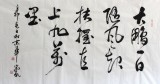 大鹏一日
同风起
扶摇直
上九万
里